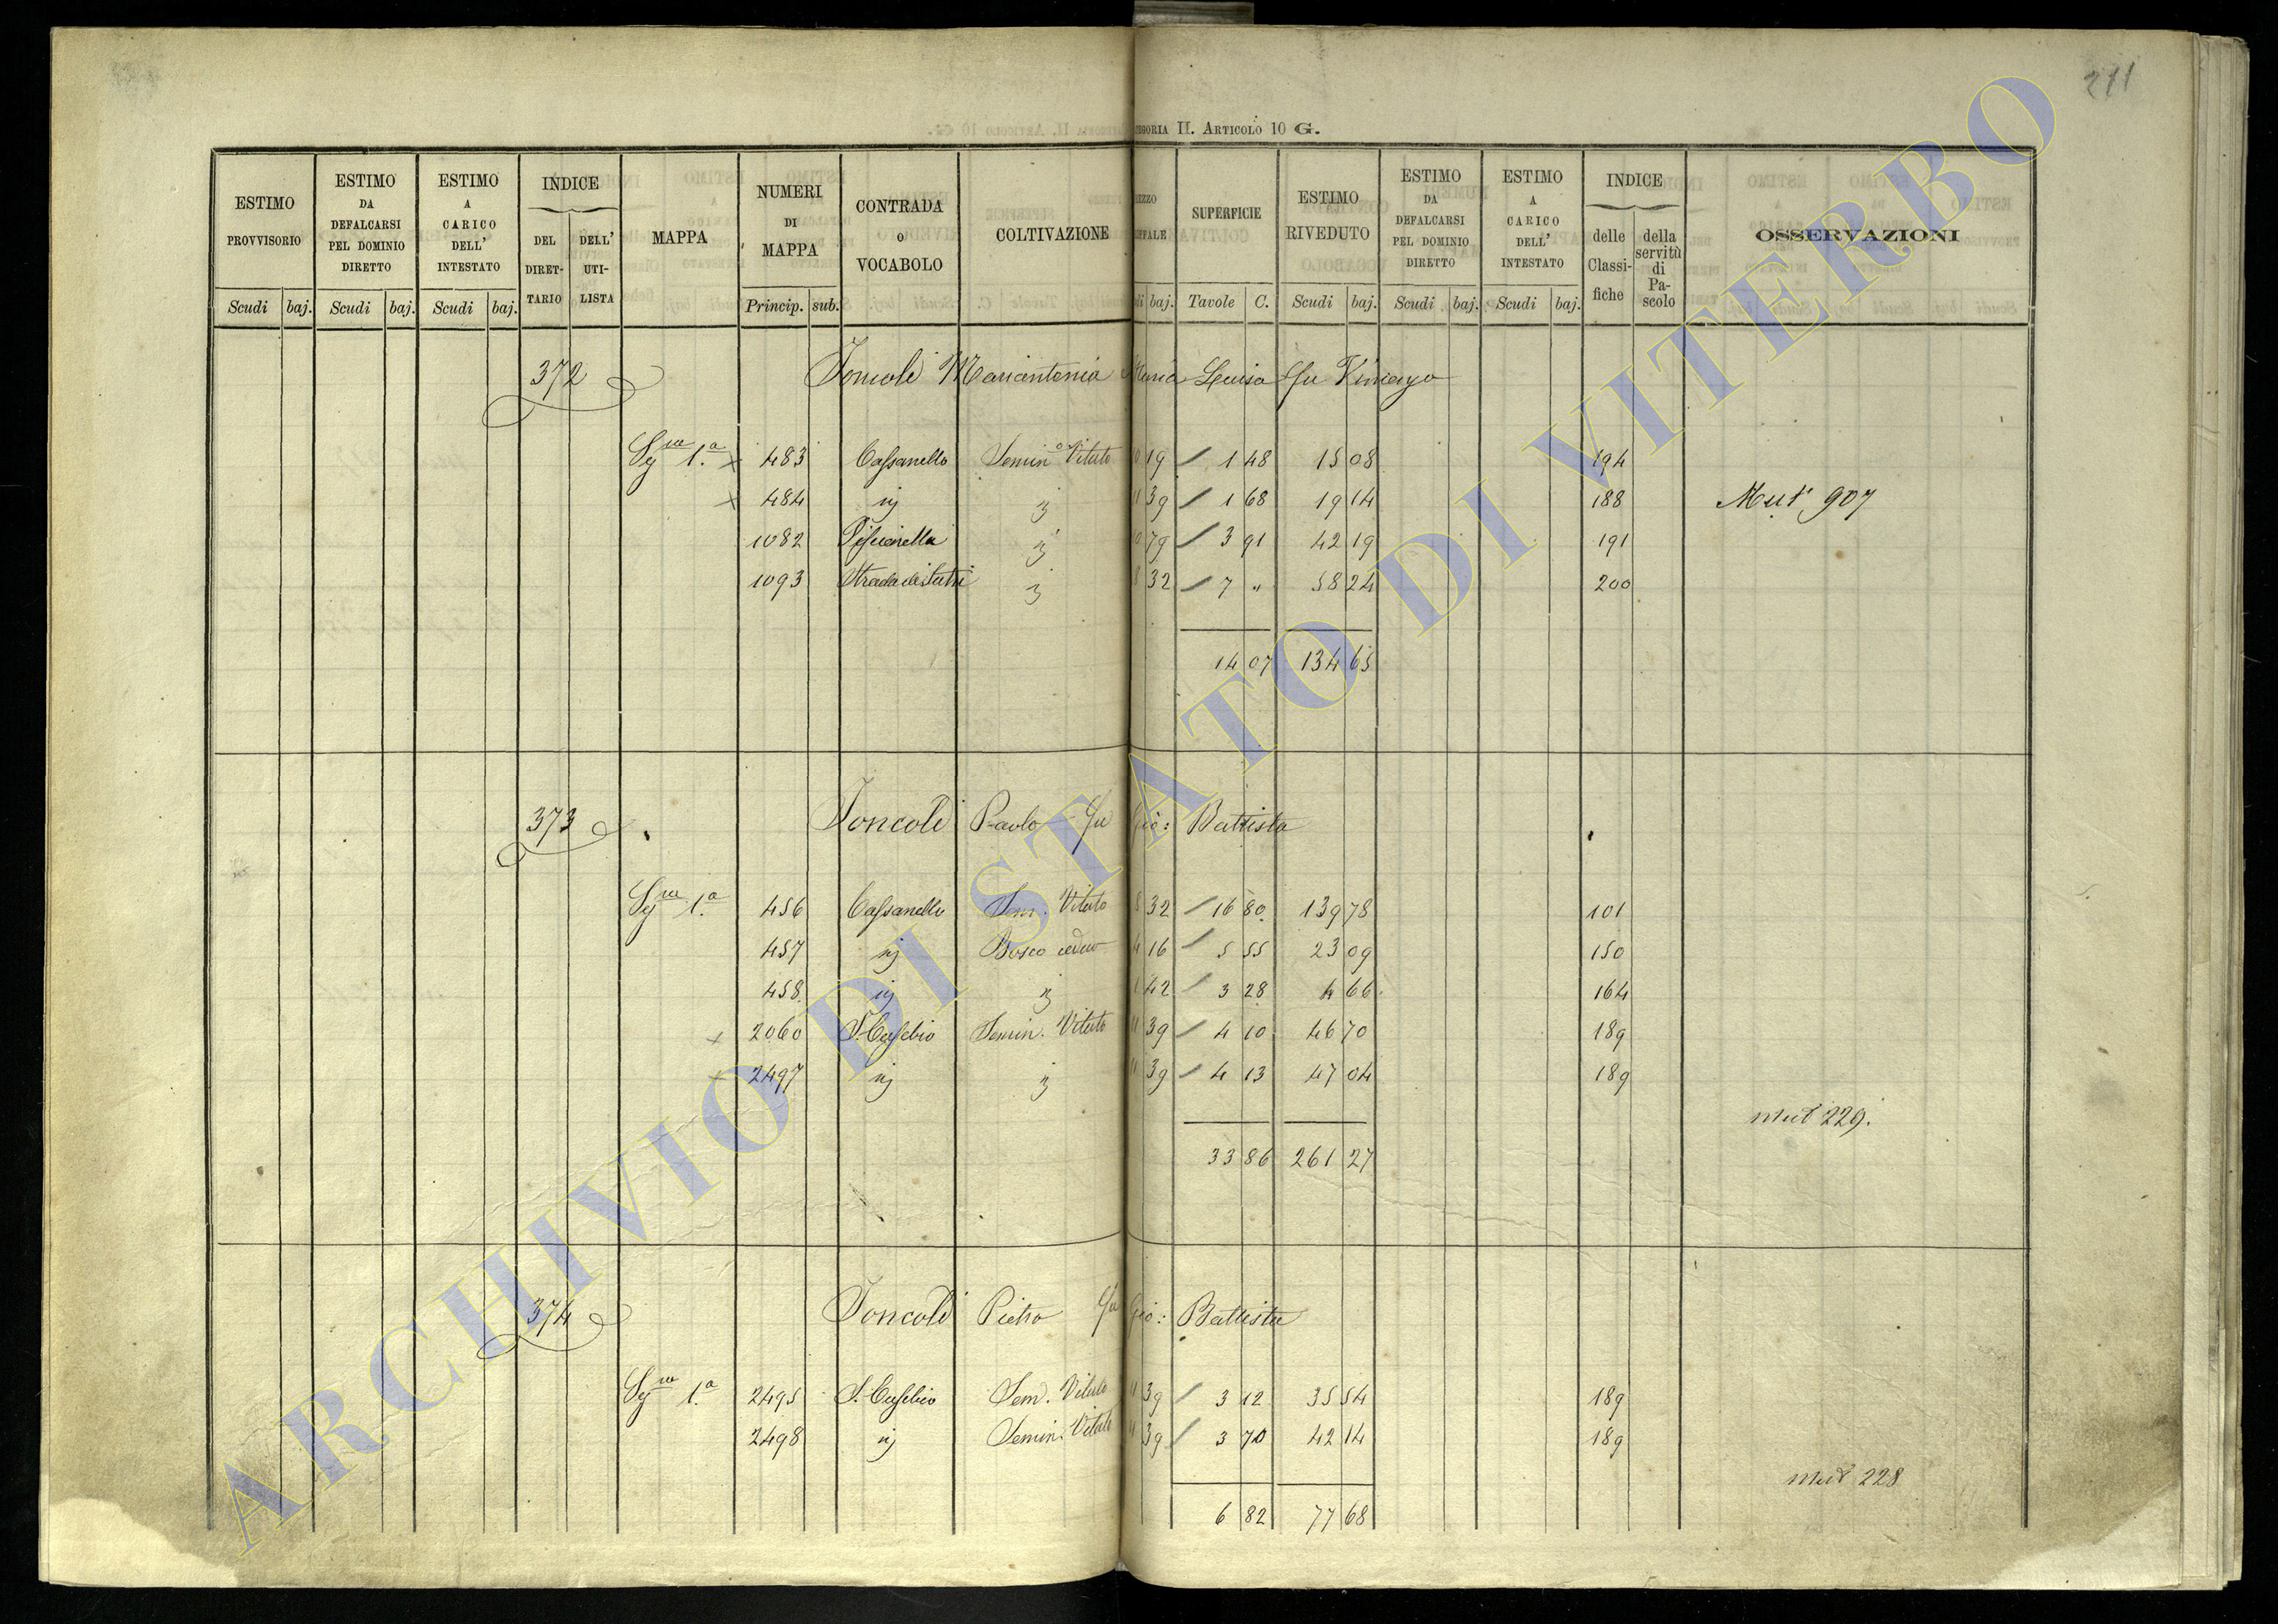 211
EGORIA II. ARTICOLO 10 G.
ESTIMO PROVVISORIO Scudi baj.
ESTIMO DA DEFALCARSI PEL DOMINIO DIRETTO Scudi baj.
ESTIMO A CARICO DELL' INTESTATO Scudi baj.
INDICE DEL DIRETTARIO DELL' UTILISTA
MAPPA
NUMERI DI MAPPA Princip. sub.
CONTRADA O VOCABOLO
COLTIVAZIONE
EZZO IFFALE di baj.
SUPERFICIE Tavole C.
ESTIMO RIVEDUTO Scudi baj.
ESTIMO DA DEFALCARSI PEL DOMINIO DIRETTO Scudi baj.
ESTIMO A CARICO DELL' INTESTATO Scudi baj.
INDICE delle Classifiche della servitù di Pascolo
OSSERVAZIONI
372 Joncoli Mariantonia Maria Luisa fu
1.a 483 Cassanello Semin.o Vitato 19 1 48 15 08 194
484 ij ij 39 1 68 19 14 188 Mut 907
1082 Piscinella ij 79 3 91 42 19 191
1093 Strada di Sutri ij 32 7 " 58 24 200
14 07 134 65
373 Joncoli Paolo fu Gio: Battista
1.a 456 Cassanello Sem. Vitato 8 32 16 80 139 78 101
457 ij Bosco ceduo 4 16 5 55 23 09 150
458 ij ij 1 42 3 28 4 66 164
2060 S. Eusebio Semin. Vitato 11 39 4 10 46 70 189
2497 ij ij 11 39 4 13 47 04 189
mut 229.
33 86 261 27
374 Joncoli Pietro fu Gio: Battista
1.a 2495 S. Eusebio Sem. Vitato 11 39 3 12 35 54 189
2498 ij Semin. Vitato 11 39 3 70 42 14 189
mut 228
6 82 77 68
ARCHIVIO DI STATO DI VITERBO